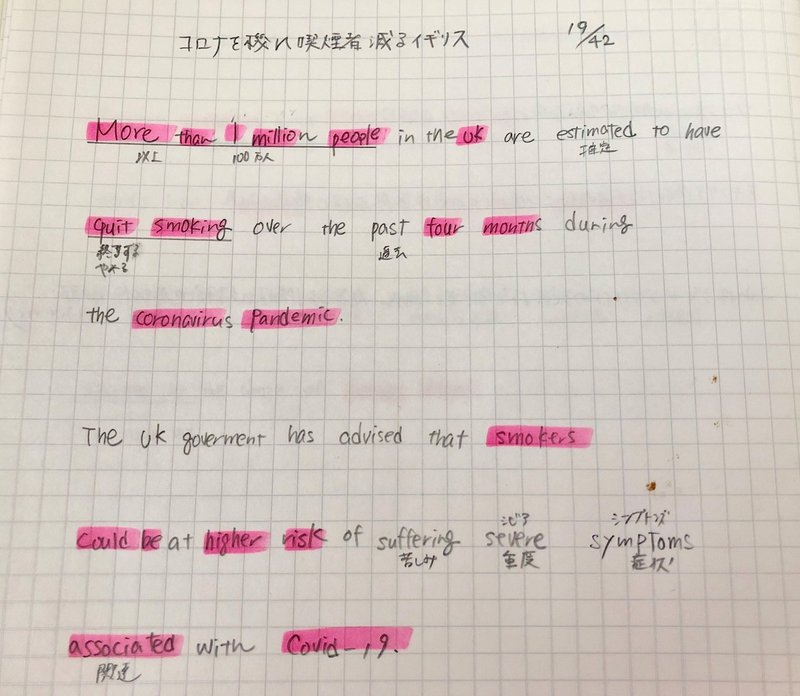 コロナを機に喫煙者減るイギリス 19/42
More than 1 million people in the UK are estimated to have
以上 100万人 推定
quit smoking over the past four months during
終了する 過去
やめる
the coronavirus pandemic.
The UK goverment has advised that smokers
シビア シンプトンズ
could be at higher risk of suffering severe symptoms
苦しみ 重度 症状
associated with Covid-19.
関連